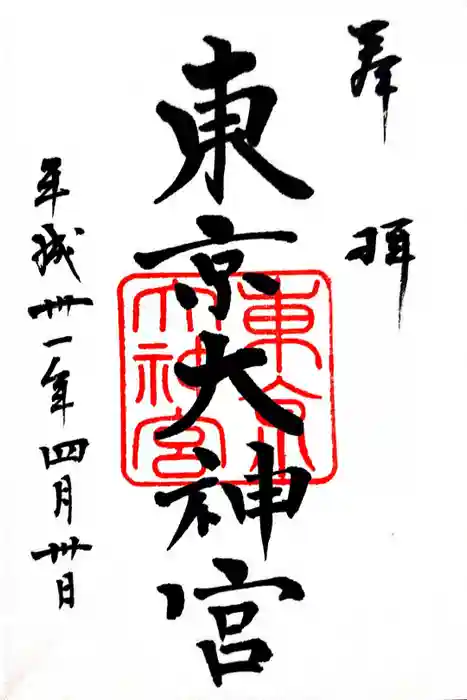 奉拝
東京大神宮
東京
大神宮
平成卅一年四月卅日